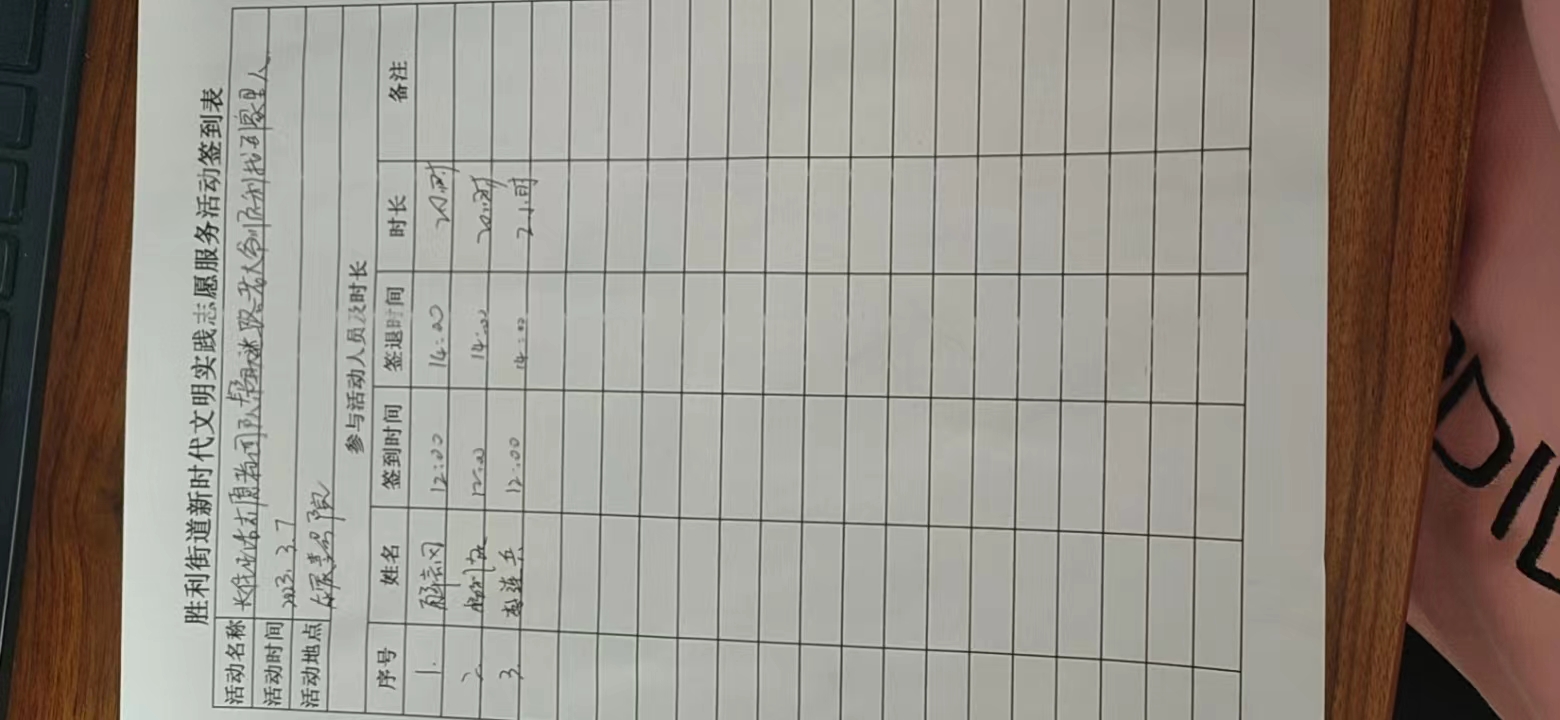 胜利街道新时代文明实践志愿服务活动签到表
活动名称 志愿者团队帮助迷路老人顺利找到家里人
活动时间 2023.3.7
活动地点
参与活动人员及时长
序号 姓名 签到时间 签退时间 时长 备注
1. 解志冈 12:00 14:00 2小时
2 12:00 14:00 2小时
3. 赵连兵 12:00 14:00 2小时